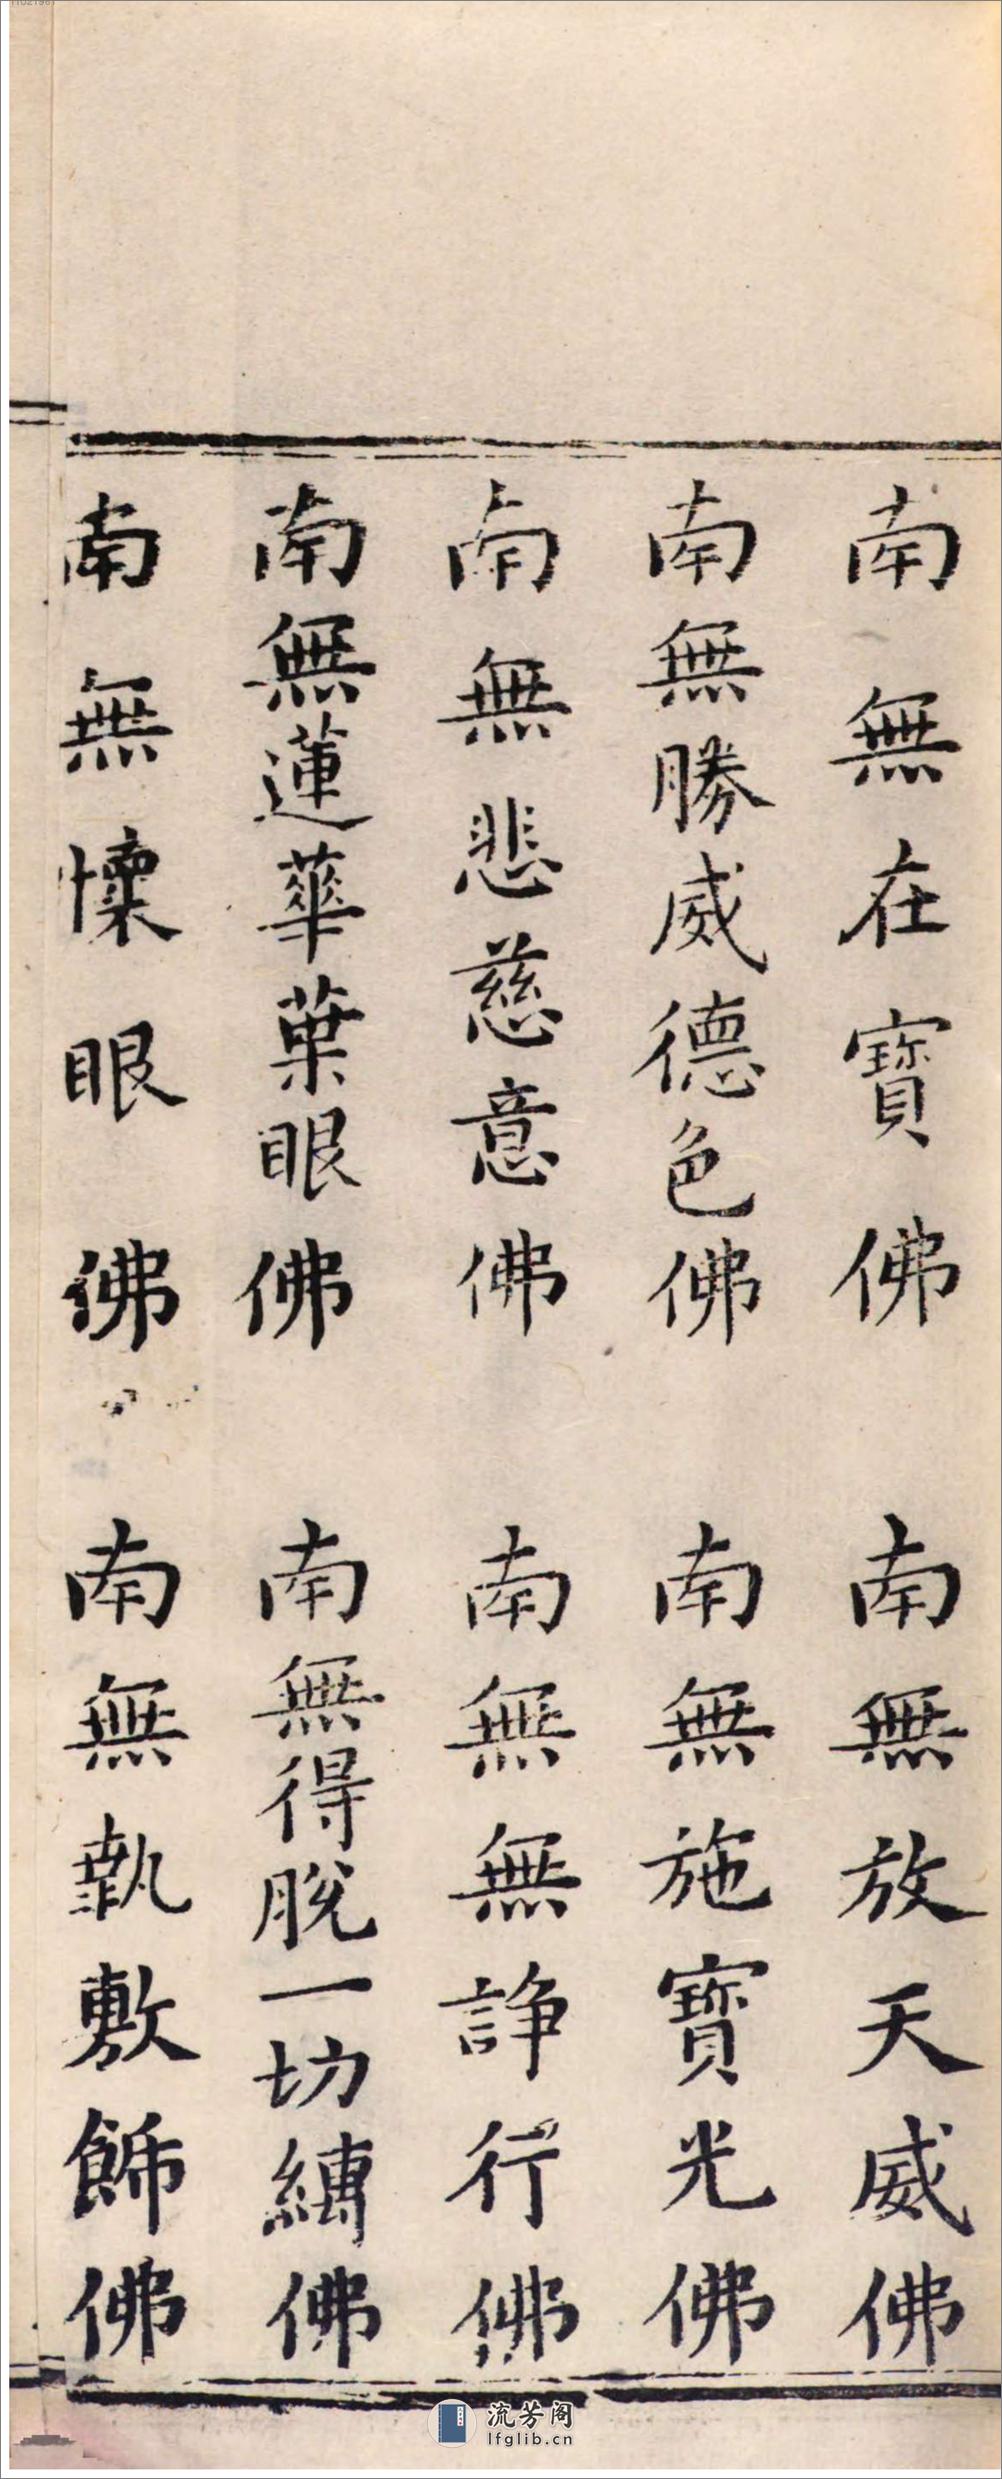 南無在寶佛 南無放天威佛
南無勝威德色佛 南無施寶光佛
南無悲慈意佛 南無無諍行佛
南無蓮華葉眼佛 南無得脫一切縛佛
南無懷眼佛 南無執敷飾佛
流芳阁
lfglib.cn